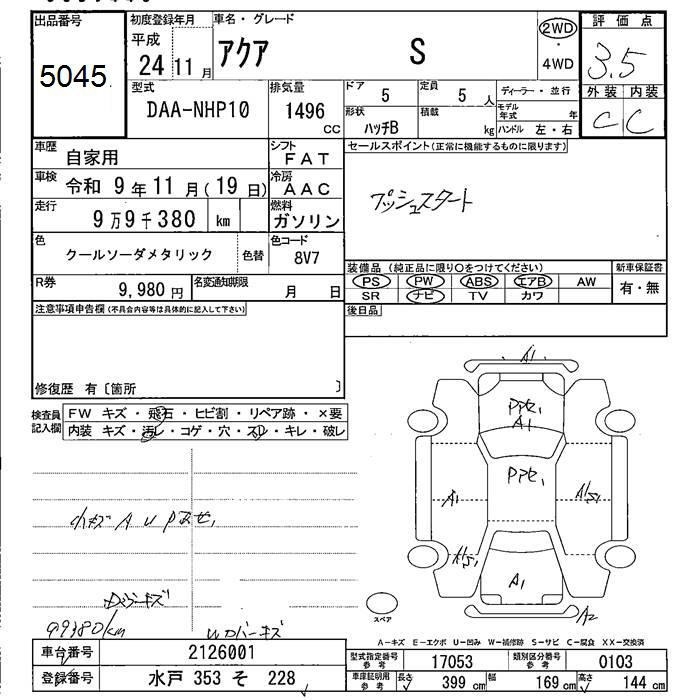 出品番号
5045
初度登録年月
平成
24 11 月
車名・グレード
アクア S
2WD
・
4WD
評価点
3.5
外装 内装
C C
型式
DAA-NHP10
排気量
1496
CC
ドア
5
定員
5 人
形状
ハッチB
積載
kg
ディーラー・並行
モデル年式 年
ハンドル 左・右
車歴
自家用
シフト
FAT
車検
令和 9 年 11 月 ( 19 日)
冷房
AAC
走行
9 万 9 千 380 km
燃料
ガソリン
色
クールソーダメタリック
色替
色コード
8V7
R券
9,980 円
名変通知期限
月 日
セールスポイント(正常に機能するものに限ります)
プッシュスタート
装備品 (純正品に限り○をつけてください)
PS PW ABS エアB AW
SR ナビ TV カワ
新車保証書
有・無
後日品
注意事項申告欄 (不具合内容等は具体的に記入して下さい)
修復歴 有〔箇所 〕
検査員
記入欄
FW キズ・飛石・ヒビ割・リペア跡・×要
内装 キズ・汚レ・コゲ・穴・スレ・キレ・破レ
小キズ A U
99380km
A1
A1
A1
A1
A2
スペア
A-キズ E-エクボ U-凹み W-補修跡 S-サビ C-腐食 XX-交換済
車台番号
2126001
登録番号
水戸 353 そ 228
型式指定番号
参考
17053
類別区分番号
参考
0103
車庫証明用
参考
長さ
399 cm
幅
169 cm
高さ
144 cm